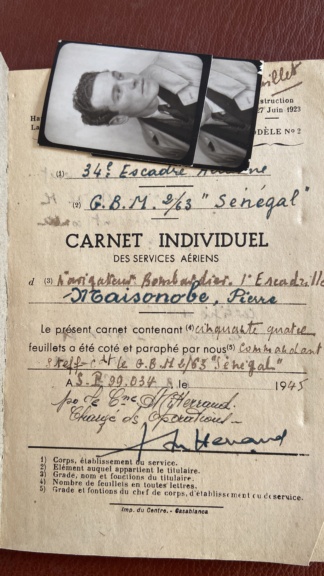 uillet
struction
27 Juin 1923
Ha
La
DÈLE No 2
(1) 34e Escadre
(2) G.B.M. 2/63 "Sénégal"
CARNET INDIVIDUEL
DES SERVICES AÉRIENS
d (3) Navigateur Bombardier. 1e Escadrille
Maisonobe, Pierre
Le présent carnet contenant (4) cinquante quatre
feuillets a été coté et paraphé par nous (5) Commandant
le G.B.M 2/63 "Sénégal"
A S.P. 99.034 le 1945
po le Cne
Chargé des Opérations
1) Corps, établissement ou service.
2) Élément auquel appartient le titulaire.
3) Grade, nom et fonctions du titulaire.
4) Nombre de feuillets en toutes lettres.
5) Grade et fontions du chef de corps, d'établissement ou de service.
Imp. du Centre. - Casablanca